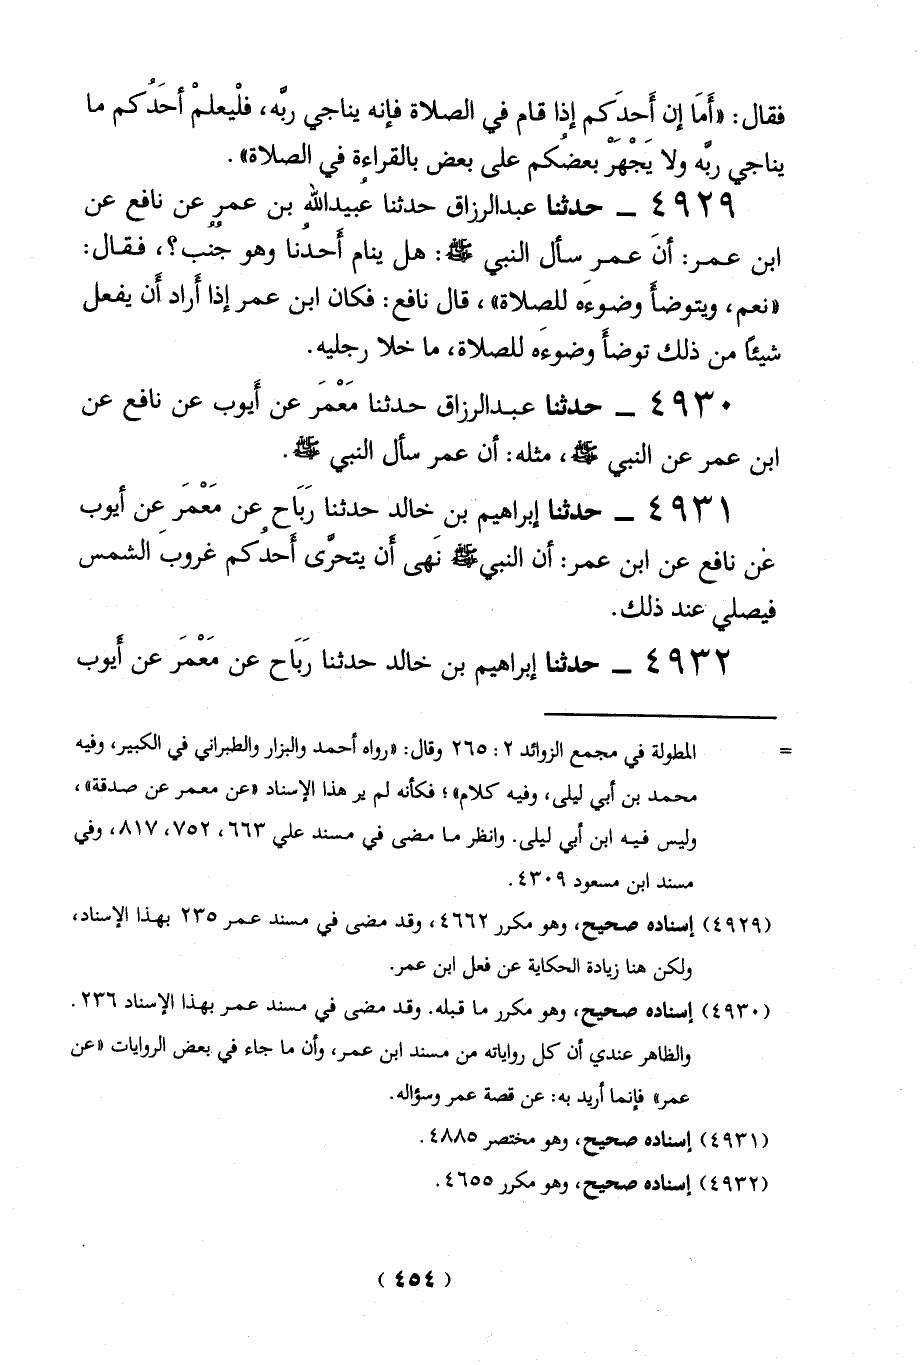 فقال: «أَمَا إن أَحدَكم إذا قام في الصلاة فإنه يناجي ربَّه، فلْيعلمْ أحَدُكم ما
يناجي ربَّه ولا يَجْهَرْ بعضُكم على بعض بالقراءة في الصلاة».
٤٩٢٩ ـ حدثنا عبدالرزاق حدثنا عُبيدالله بن عمر عن نافع عن
ابن عمر: أن عمر سأل النبي ﷺ: هل ينام أحدُنا وهو جُنُب؟، فقال:
«نعم، ويتوضأ وضوءَه للصلاة»، قال نافع: فكان ابن عمر إذا أراد أن يفعل
شيئًا من ذلك توضأ وضوءَه للصلاة، ما خلا رجليه.
٤٩٣٠ ـ حدثنا عبدالرزاق حدثنا مَعْمَر عن أيوب عن نافع عن
ابن عمر عن النبي ﷺ، مثله: أن عمر سأل النبي ﷺ.
٤٩٣١ ـ حدثنا إبراهيم بن خالد حدثنا رَبَاح عن مَعْمَر عن أيوب
عن نافع عن ابن عمر: أن النبي ﷺ نَهى أن يتحرَّى أحدُكم غروب الشمس
فيصلي عند ذلك.
٤٩٣٢ ـ حدثنا إبراهيم بن خالد حدثنا رَبَاح عن مَعْمَر عن أيوب
= المطولة في مجمع الزوائد ٢: ٢٦٥ وقال: «رواه أحمد والبزار والطبراني في الكبير، وفيه
محمد بن أبي ليلى، وفيه كلام»؛ فكأنه لم ير هذا الإسناد «عن معمر عن صدقة»،
وليس فيه ابن أبي ليلى. وانظر ما مضى في مسند علي ٦٦٣، ٧٥٢، ٨١٧، وفي
مسند ابن مسعود ٤٣٠٩.
(٤٩٢٩) إسناده صحيح، وهو مكرر ٤٦٦٢، وقد مضى في مسند عمر ٢٣٥ بهذا الإسناد،
ولكن هنا زيادة الحكاية عن فعل ابن عمر.
(٤٩٣٠) إسناده صحيح، وهو مكرر ما قبله. وقد مضى في مسند عمر بهذا الإسناد ٢٣٦.
والظاهر عندي أن كل رواياته من مسند ابن عمر، وأن ما جاء في بعض الروايات «عن
عمر» فإنما أريد به: عن قصة عمر وسؤاله.
(٤٩٣١) إسناده صحيح، وهو مختصر ٤٨٨٥.
(٤٩٣٢) إسناده صحيح، وهو مكرر ٤٦٥٥.
(٤٥٤)